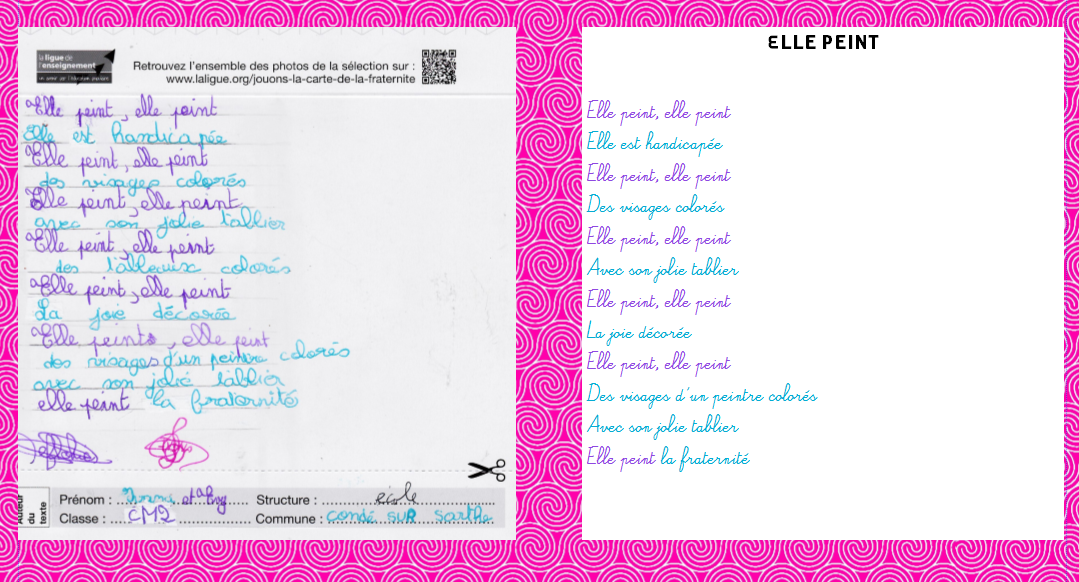 la ligue de
l'enseignement
un avenir par l'éducation populaire
Retrouvez l'ensemble des photos de la sélection sur :
www.laligue.org/jouons-la-carte-de-la-fraternite
Elle peint, elle peint
Elle est handicapée
Elle peint, elle peint
des visages colorés
Elle peint, elle peint
avec son jolie tablier
Elle peint, elle peint
des tableaux colorés
Elle peint, elle peint
La joie décorée
Elle peints, elle peint
des visages d'un peintre colorés
avec son jolie tablier
elle peint la fraternité
Auteur
du
texte
Prénom : Thomas et Structure : école
Classe : CM2 Commune : condé sur Sarthe
ELLE PEINT
Elle peint, elle peint
Elle est handicapée
Elle peint, elle peint
Des visages colorés
Elle peint, elle peint
Avec son jolie tablier
Elle peint, elle peint
La joie décorée
Elle peint, elle peint
Des visages d'un peintre colorés
Avec son jolie tablier
Elle peint la fraternité